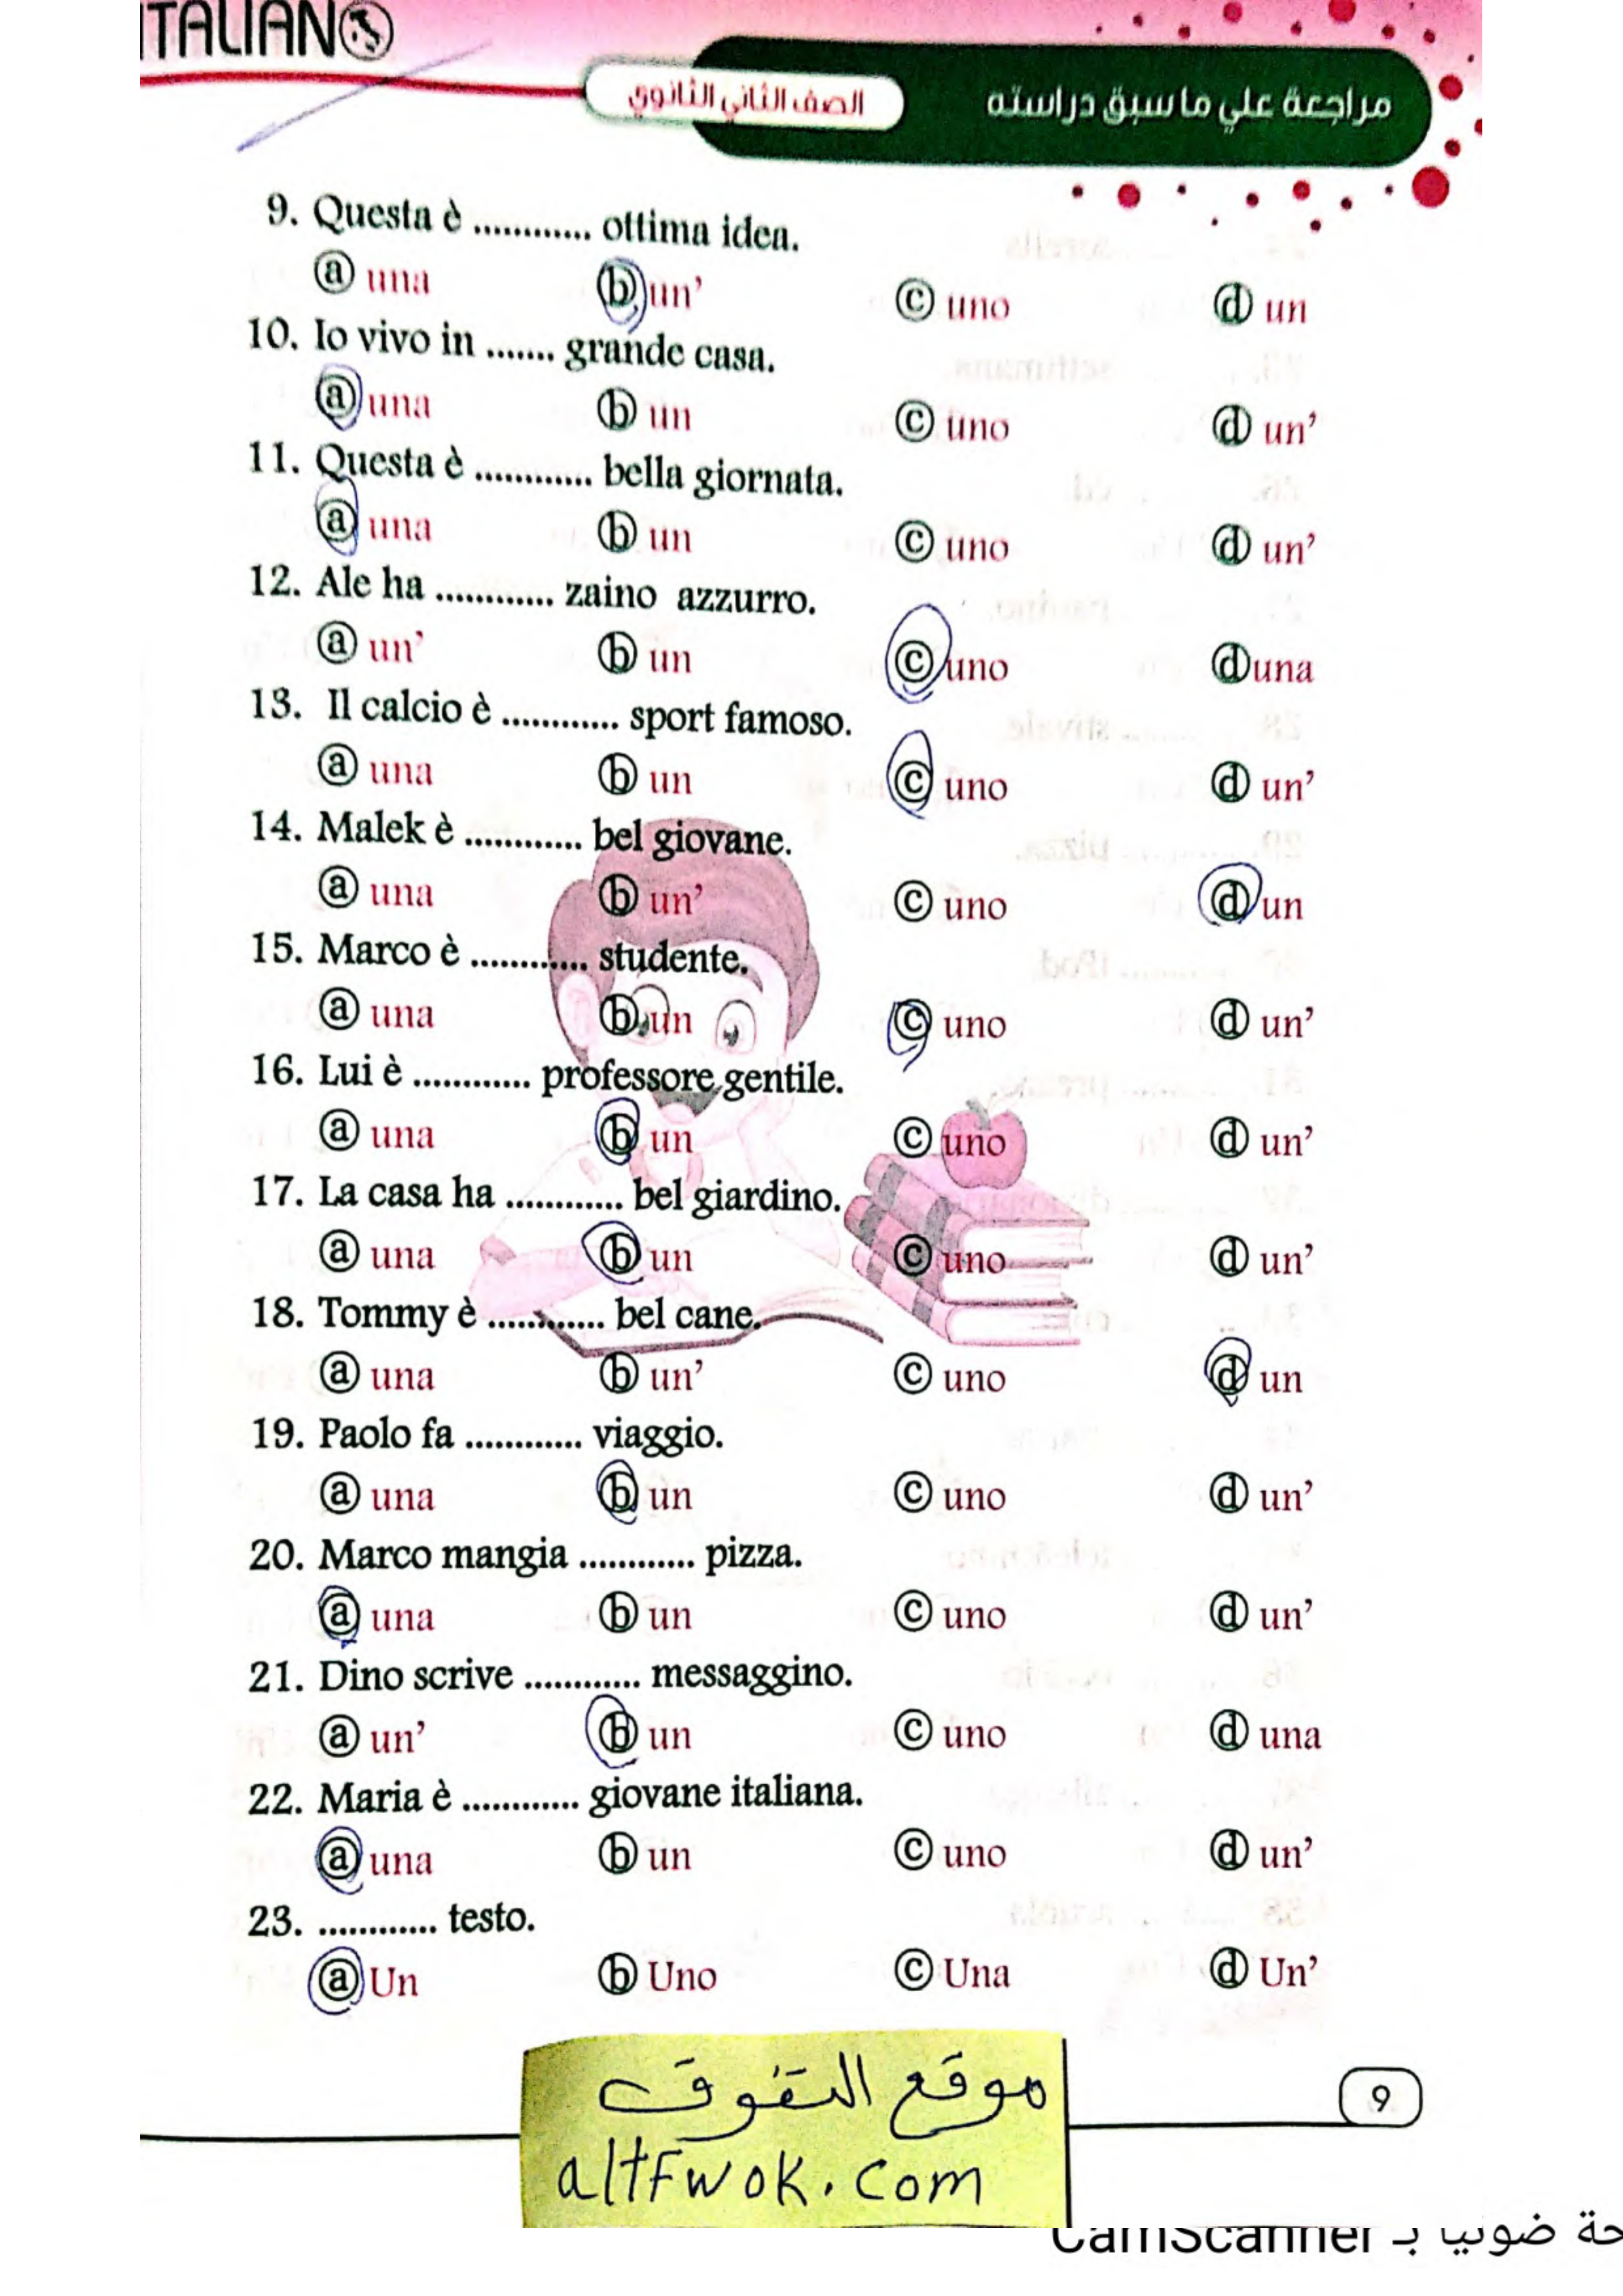 ITALIANO
الصف الثاني الثانوي
مراجعة علي ما سبق دراسته
9. Questa è ............ ottima idea.
ⓐ una ⓑ un’ ⓒ uno ⓓ un
10. Io vivo in ....... grande casa.
ⓐ una ⓑ un ⓒ uno ⓓ un’
11. Questa è ............ bella giornata.
ⓐ una ⓑ un ⓒ uno ⓓ un’
12. Ale ha ............ zaino azzurro.
ⓐ un’ ⓑ un ⓒ uno ⓓ una
13. Il calcio è ............ sport famoso.
ⓐ una ⓑ un ⓒ uno ⓓ un’
14. Malek è ............ bel giovane.
ⓐ una ⓑ un’ ⓒ uno ⓓ un
15. Marco è ............ studente.
ⓐ una ⓑ un ⓒ uno ⓓ un’
16. Lui è ............ professore gentile.
ⓐ una ⓑ un ⓒ uno ⓓ un’
17. La casa ha ............ bel giardino.
ⓐ una ⓑ un ⓒ uno ⓓ un’
18. Tommy è ............ bel cane.
ⓐ una ⓑ un’ ⓒ uno ⓓ un
19. Paolo fa ............ viaggio.
ⓐ una ⓑ un ⓒ uno ⓓ un’
20. Marco mangia ............ pizza.
ⓐ una ⓑ un ⓒ uno ⓓ un’
21. Dino scrive ............ messaggino.
ⓐ un’ ⓑ un ⓒ uno ⓓ una
22. Maria è ............ giovane italiana.
ⓐ una ⓑ un ⓒ uno ⓓ un’
23. ............ testo.
ⓐ Un ⓑ Uno ⓒ Una ⓓ Un’
موقع التفوق
altFwok.com
9
ضوئيا بـ CamScanner